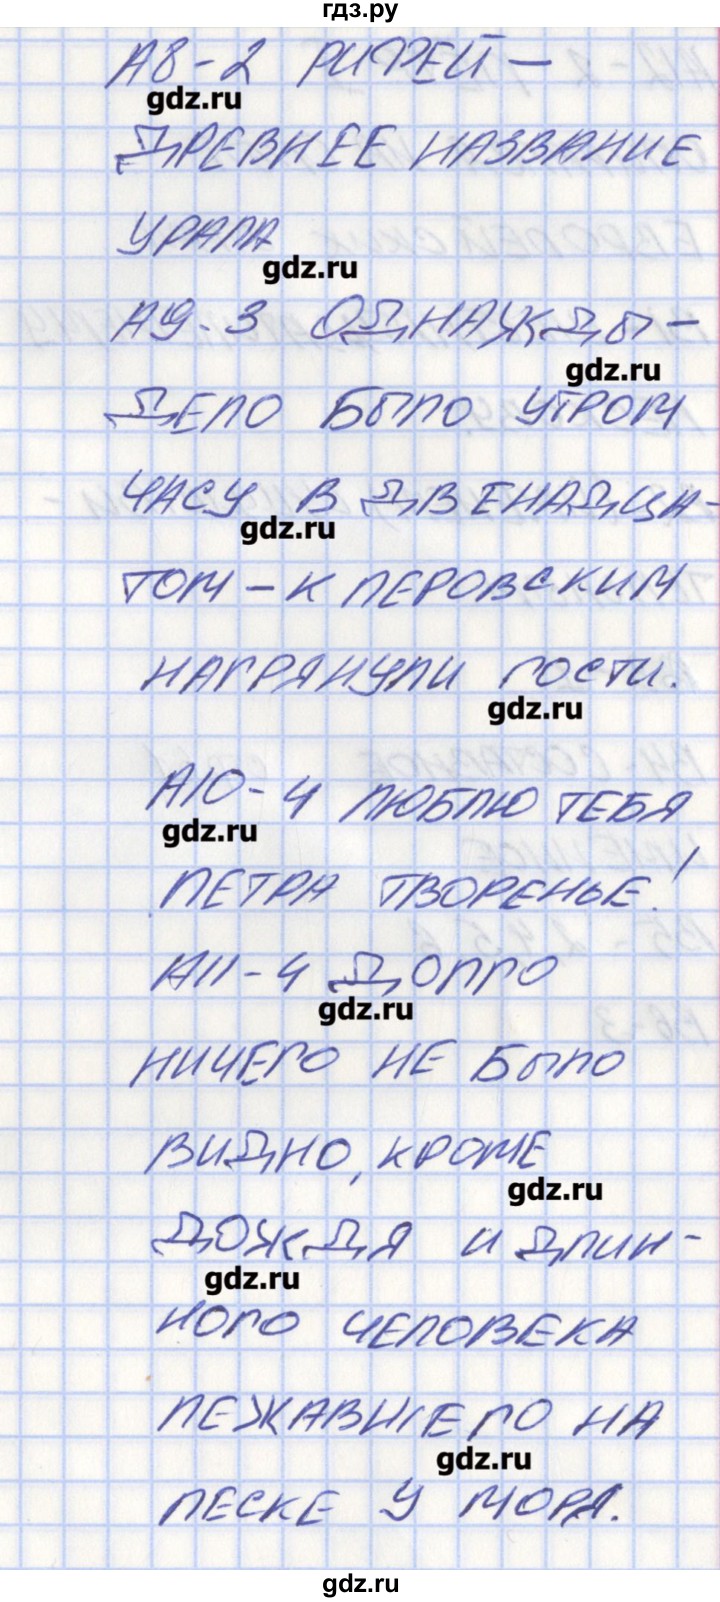 гдз.ру
А8-2 РИФЕЙ —
gdz.ru
ДРЕВНЕЕ НАЗВАНИЕ
УРАЛА
gdz.ru
А9-3 ОДНАЖДЫ-
gdz.ru
ДЕЛО БЫЛО УТРОМ
ЧАСУ В ДВЕНАДЦА-
gdz.ru
ТОМ - К ПЕРОВСКИМ
НАГРЯНУЛИ ГОСТИ.
gdz.ru
А10-4 ЛЮБЛЮ ТЕБЯ
gdz.ru
ПЕТРА ТВОРЕНЬЕ!
А11-4 ДОЛГО
gdz.ru
НИЧЕГО НЕ БЫЛО
ВИДНО, КРОМЕ
gdz.ru
ДОЖДЯ И ДЛИН-
gdz.ru
НОГО ЧЕЛОВЕКА
ЛЕЖАВШЕГО НА
gdz.ru
ПЕСКЕ У МОРЯ.
gdz.ru